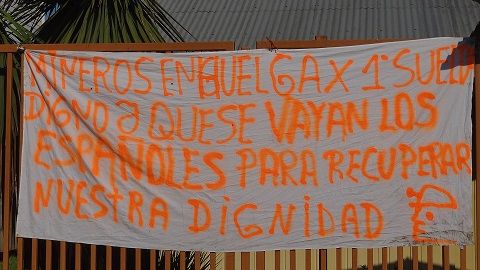 MINEROS EN HUELGA X 1 SUELDO
DIGNO Y QUE SE VAYAN LOS
ESPAÑOLES PARA RECUPERAR
NUESTRA DIGNIDAD